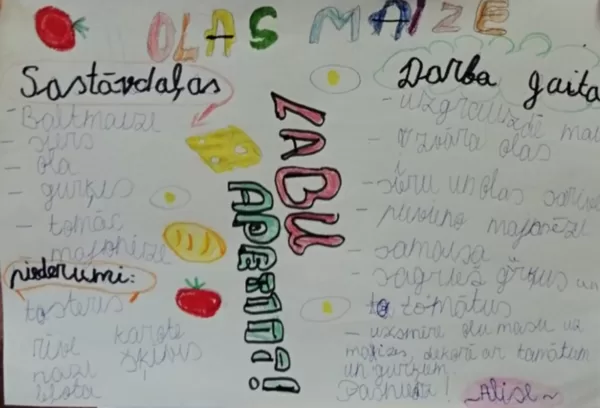 OLAS MAIZE
Sastāvdaļas
- Baltmaize
- siers
- ola
- gurķis
- tomāt
- majonēze
piederumi:
tosteris
rīve karote
naži šķīvis
bļoda
LABU
APETĪTI!
Darba gaita
- uzgrauzdē mai
- izvāra olas
- sieru un olas sarīvē
- pievieno majonēzi
- samaisa
- sagriež gurķus un
tomātus
- uzsmērē olu masu uz
maizes, dekorē ar tomātiem
un gurķiem.
Pasniedz!
~Alise~